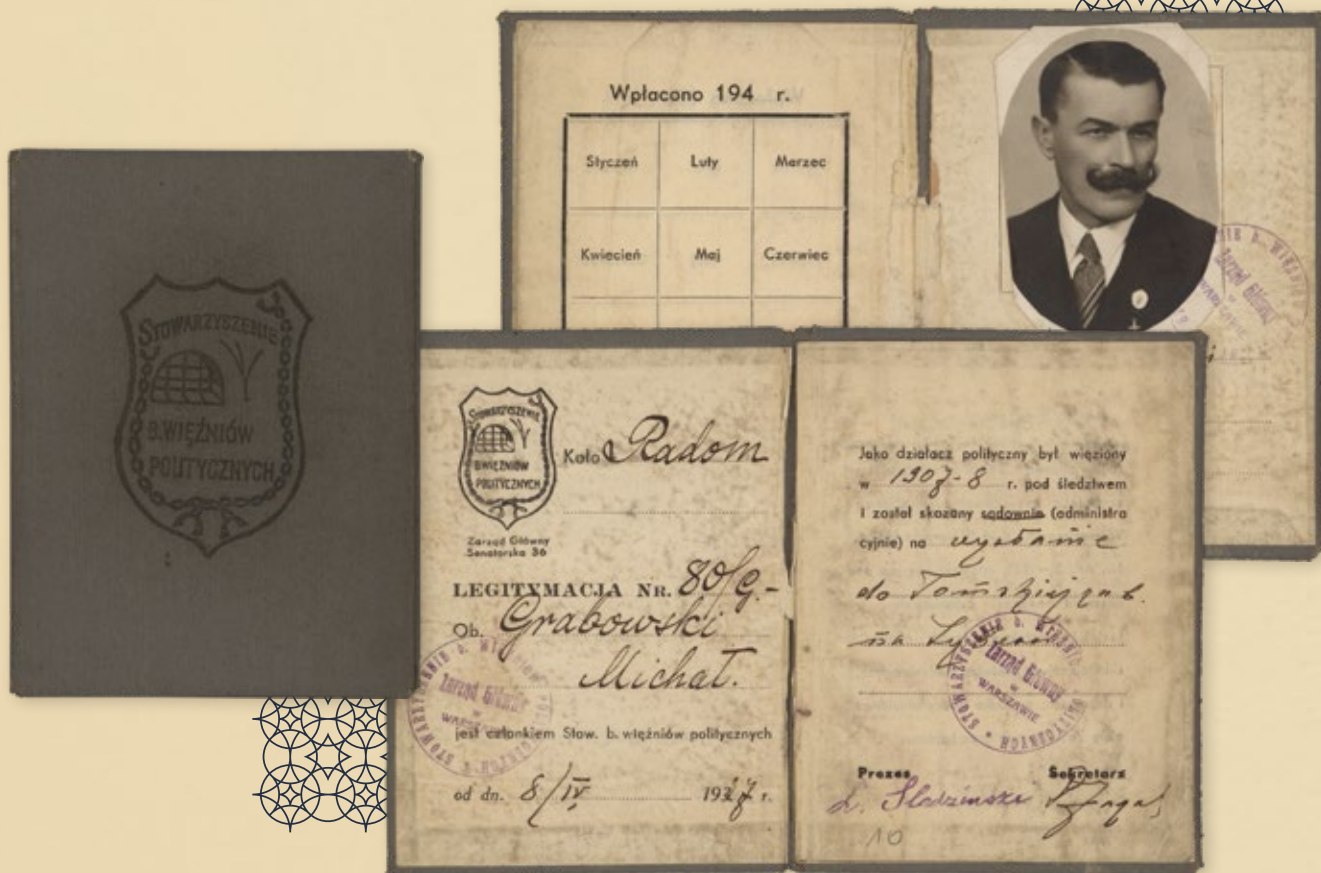 STOWARZYSZENIE
B. WIĘŹNIÓW
POLITYCZNYCH
Wpłacono 194 r.
Styczeń Luty Marzec
Kwiecień Maj Czerwiec
STOWARZYSZENIE
B. WIĘŹNIÓW
POLITYCZNYCH
Koło Radom
Zarząd Główny
Senatorska 36
LEGITYMACJA NR. 80/G.-
Ob. Grabowski
Michał.
jest członkiem Stow. b. więźniów politycznych
od dn. 8/IV 1937 r.
STOWARZYSZENIE b. WIĘŹNIÓW POLITYCZNYCH
Zarząd Główny
w
WARSZAWIE
Jako działacz polityczny był więziony
w 1907-8 r. pod śledztwem
i został skazany sądownie (administra
cyjnie) na wysłanie
do
na
STOWARZYSZENIE b. WIĘŹNIÓW POLITYCZNYCH
Zarząd Główny
w
WARSZAWIE
Prezes Sekretarz
10
Zarząd Główny
w